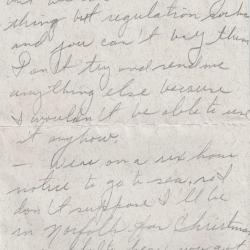 thing but regulation socks
and you can't buy them
Don't try and send me
anything else because
I wouldn't be able to use
it anyhow.
— were on a six hour
notice to go to sea, so I
don't suppose I'll be
in Norfolk for Christmas